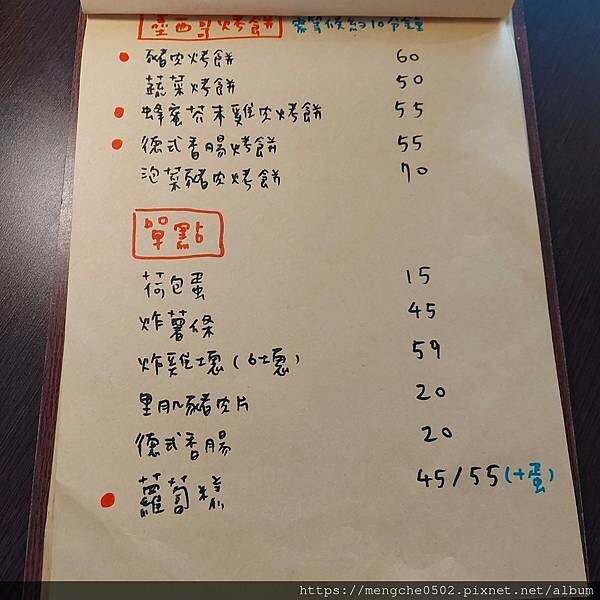 墨西哥烤餅 需等候約10分鐘
豬肉烤餅 60
蔬菜烤餅 50
蜂蜜芥末雞肉烤餅 55
德式香腸烤餅 55
泡菜豬肉烤餅 70
單點
荷包蛋 15
炸薯條 45
炸雞塊(6塊) 59
里肌豬肉片 20
德式香腸 20
蘿蔔糕 45/55(+蛋)
https://mengche0502.pixnet.net/album